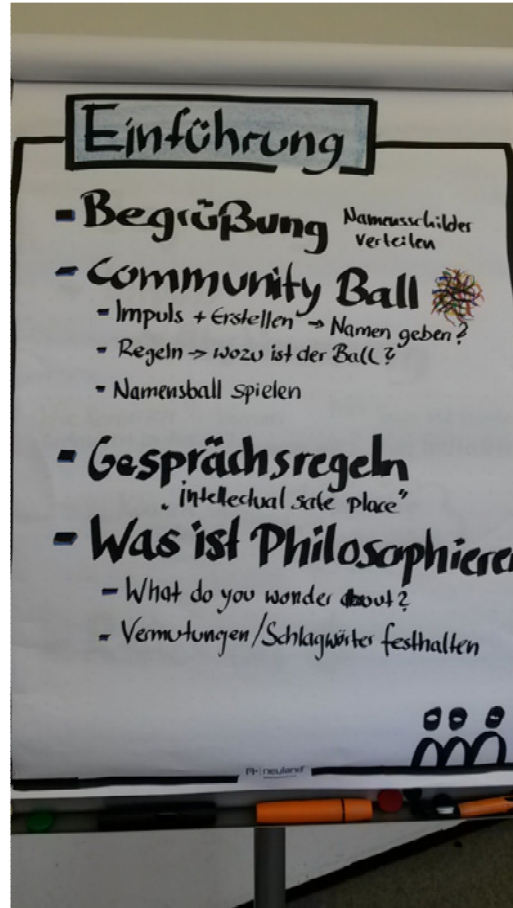 Einführung
- Begrüßung Namensschilder
verteilen
- Community Ball
- Impuls + Erstellen → Namen geben?
- Regeln → wozu ist der Ball?
- Namensball spielen
- Gesprächsregeln
„intellectual safe place"
- Was ist Philosophieren
- What do you wonder about?
- Vermutungen/Schlagwörter festhalten
neuland